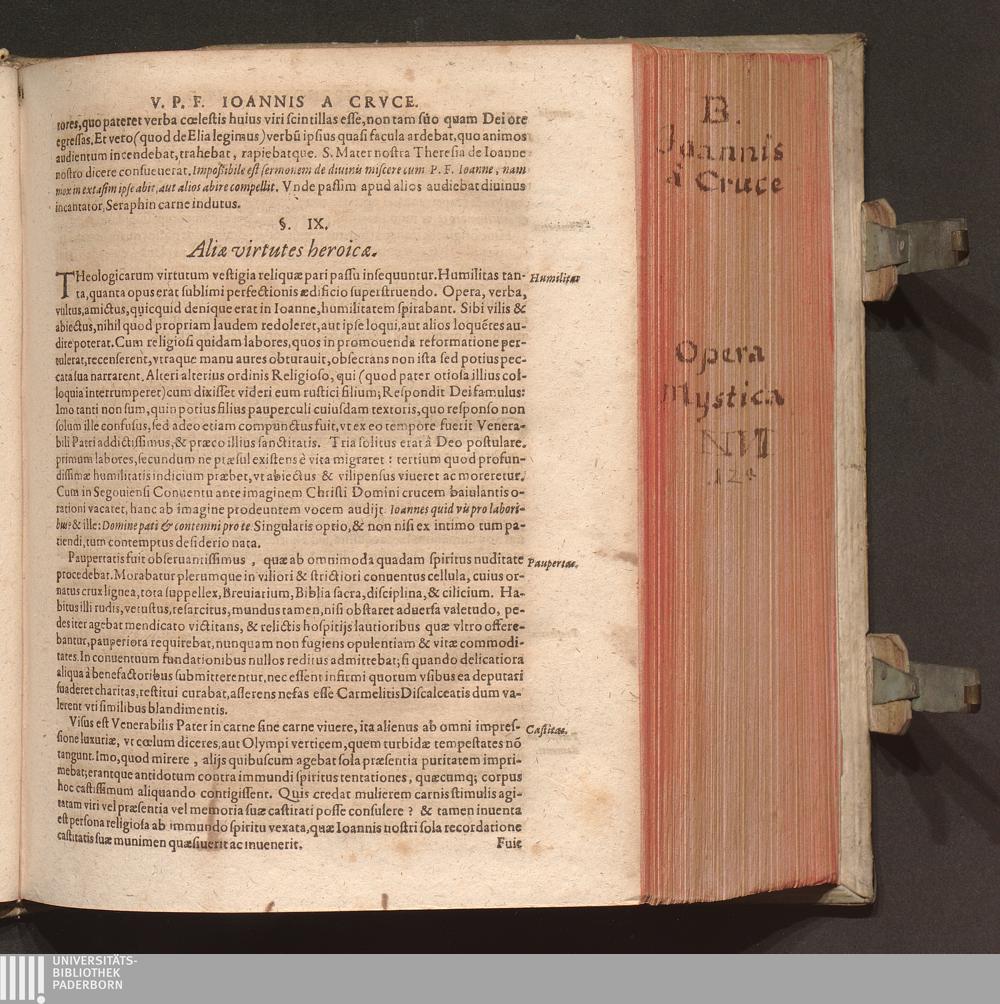 V. P. F. IOANNIS A CRVCE.
tores, quo pateret verba cœlestis huius viri scintillas esse, non tam suo quam Dei ore
egressas. Et vero (quod de Elia legimus) verbũ ipsius quasi facula ardebat, quo animos
audientum incendebat, trahebat, rapiebatque. S. Mater nostra Theresia de Ioanne
nostro dicere consueuerat. Impossibile est sermonem de diuinis miscere cum P. F. Ioanne, nam
mox in extasim ipse abit, aut alios abire compellit. Vnde passim apud alios audiebat diuinus
incantator, Seraphin carne indutus.
§. IX.
Aliæ virtutes heroicæ.
THeologicarum virtutum vestigia reliquæ pari passu insequuntur. Humilitas tan- Humilitas
ta, quanta opus erat sublimi perfectionis ædificio superstruendo. Opera, verba,
vultus, amictus, quicquid denique erat in Ioanne, humilitatem spirabant. Sibi vilis &
abiectus, nihil quod propriam laudem redoleret, aut ipse loqui, aut alios loquẽtes au-
dire poterat. Cum religiosi quidam labores, quos in promouenda reformatione per-
tulerat, recenserent, vtraque manu aures obturauit, obsecrans non ista sed potius pec-
cata sua narrarent. Alteri alterius ordinis Religioso, qui (quod pater otiosa illius col-
loquia interrumperet) cum dixisset videri eum rustici filium; Respondit Dei famulus:
Imo tanti non sum, quin potius filius pauperculi cuiusdam textoris, quo responso non
solum ille confusus, sed adeo etiam compunctus fuit, vt ex eo tempore fuerit Venera-
bili Patri addictissimus, & præco illius sanctitatis. Tria solitus erat à Deo postulare.
primum labores, secundum ne præsul existens è vita migraret: tertium quod profun-
dissimæ humilitatis indicium præbet, vt abiectus & vilipensus viueret ac moreretur.
Cum in Segouiensi Conuentu ante imaginem Christi Domini crucem baiulantis o-
rationi vacaret, hanc ab imagine prodeuntem vocem audijt Ioannes quid vis pro labori-
bus? & ille: Domine pati & contemni pro te Singularis optio, & non nisi ex intimo tum pa-
tiendi, tum contemptus desiderio nata.
Paupertatis fuit obseruantissimus, quæ ab omnimoda quadam spiritus nuditate Paupertas.
procedebat. Morabatur plerumque in viliori & strictiori conuentus cellula, cuius or-
natus crux lignea, tota suppellex, Breuiarium, Biblia sacra, disciplina, & cilicium. Ha-
bitus illi rudis, vetustus, resarcitus, mundus tamen, nisi obstaret aduersa valetudo, pe-
des iter agebat mendicato victitans, & relictis hospitijs lautioribus quæ vltro offere-
bantur, pauperiora requirebat, nunquam non fugiens opulentiam & vitæ commodi-
tates. In conuentuum fundationibus nullos reditus admittebat; si quando delicatiora
aliqua à benefactoribus submitterentur, nec essent infirmi quorum vsibus ea deputari
suaderet charitas, restitui curabat, asserens nefas esse Carmelitis Discalceatis dum va-
lerent vti similibus blandimentis.
Visus est Venerabilis Pater in carne sine carne viuere, ita alienus ab omni impres- Castitas.
sione luxuriæ, vt cœlum diceres, aut Olympi verticem, quem turbidæ tempestates nõ
tangunt. Imo, quod mirere, alijs quibuscum agebat sola præsentia puritatem impri-
mebat; erantque antidotum contra immundi spiritus tentationes, quæcumq; corpus
hoc castissimum aliquando contigissent. Quis credat mulierem carnis stimulis agi-
tatam viri vel præsentia vel memoria suæ castitati posse consulere? & tamen inuenta
est persona religiosa ab immundo spiritu vexata, quæ Ioannis nostri sola recordatione
castitatis suæ munimen quæsiuerit ac inuenerit.
Fuit
B.
Joannis
à Cruce
Opera
Mystica
124
UNIVERSITÄTS-
BIBLIOTHEK
PADERBORN